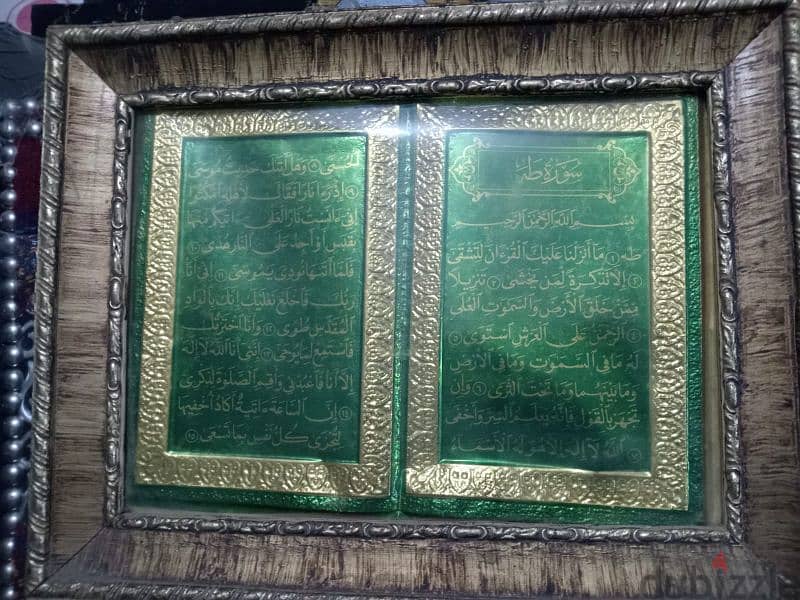 سورة طه
بسم الله الرحمن الرحيم
طه ١ ما أنزلنا عليك القرءان لتشقى
٢ إلا تذكرة لمن يخشى ٣ تنزيلا
ممن خلق الأرض والسموت العلى
٤ الرحمن على العرش استوى ٥
له ما في السموت وما في الأرض
وما بينهما وما تحت الثرى ٦ وإن
تجهر بالقول فإنه يعلم السر وأخفى
٧ الله لا إله إلا هو له الأسماء
الحسنى ٨ وهل أتىك حديث موسى
٩ إذ رءا نارا فقال لأهله امكثوا
إني ءانست نارا لعلي ءاتيكم منها
بقبس أو أجد على النار هدى ١٠
فلما أتىها نودي يموسى ١١ إني أنا
ربك فاخلع نعليك إنك بالواد
المقدس طوى ١٢ وأنا اخترتك
فاستمع لما يوحى ١٣ إنني أنا الله لا إله
إلا أنا فاعبدني وأقم الصلوة لذكري
١٤ إن الساعة ءاتية أكاد أخفيها
لتجزى كل نفس بما تسعى ١٥
dubizzle